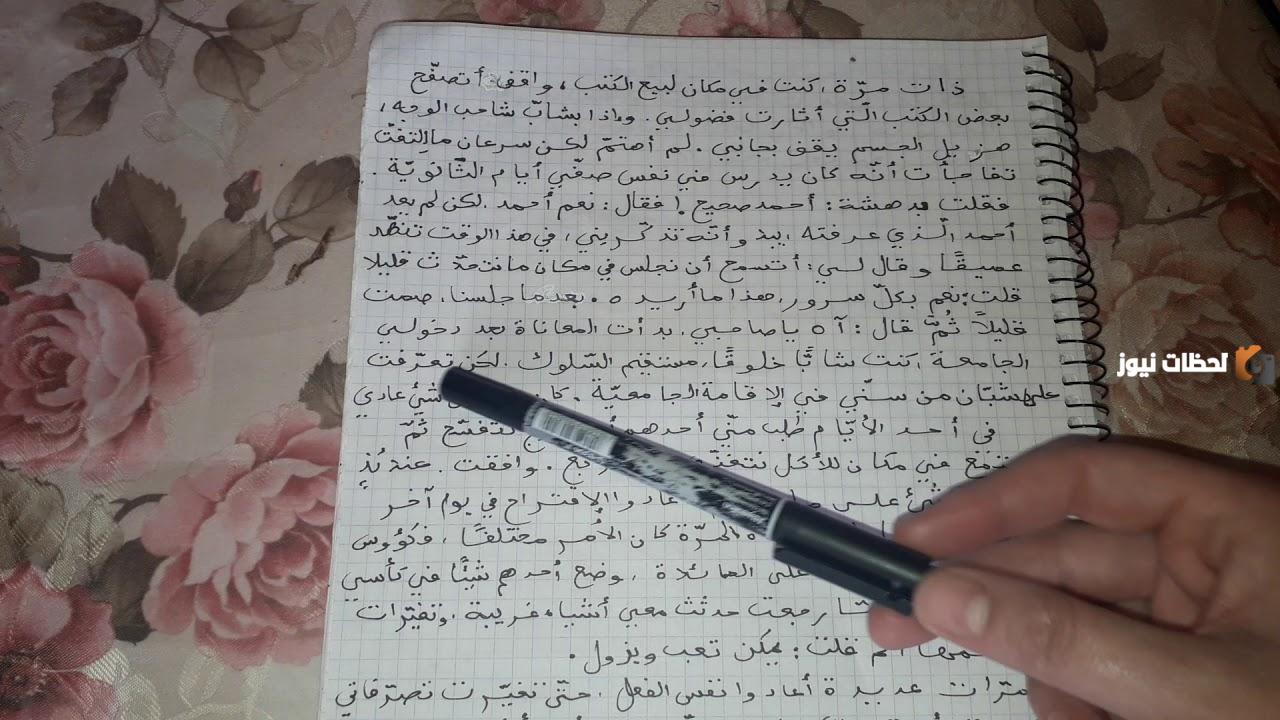 ذات مرّة، كنت في مكان لبيع الكتب، واقف أتصفّح
بعض الكتب الّتي أثارت فضولي. وإذا بشابّ شاحب الوجه،
هزيل الجسم يقف بجانبي. لم أهتمّ لكن سرعان ما إلتفتّ
تفاجأت أنّه كان يدرس في نفس صفّي أيام الثّانويّة.
فقلت بدهشة: أحمد صحيح! فقال: نعم أحمد. لكن لم يعد
أحمد الّذي عرفته، يبدو أنّه تذكّرني، في هذا الوقت تنهّد
عميقًا وقال لي: أتسمح أن نجلس في مكان ما نتحدّث قليلا
قلت: نعم بكلّ سرور، هذا ما أريده. بعد ما جلسنا، صمت
قليلاً ثُمَّ قال: آه يا صاحبي، بدأت المعاناة بعد دخولي
الجامعة، كنت شابًّا خلوقًا، مستقيم السّلوك. لكن تعرّفت
على شبّان من سنّي في الإقامة الجامعيّة. شيء عادي
في أحد الأيّام طلب منّي أحدهم ثمّ
في مكان للأكل وافقت. عندئذٍ
الاقتراح في يوم آخر
المرّة كان الأمر مختلفًا، فكؤوس
على المائدة، وضع أحدهم شيئًا في كأسي
رجعت حدثت معي أشياء غريبة، وتغيّرات
قلت: يمكن تعب ويزول.
مرّات عديدة أعادوا نفس الفعل، حتّى تغيّرت تصرّفاتي
لحظات نيوز